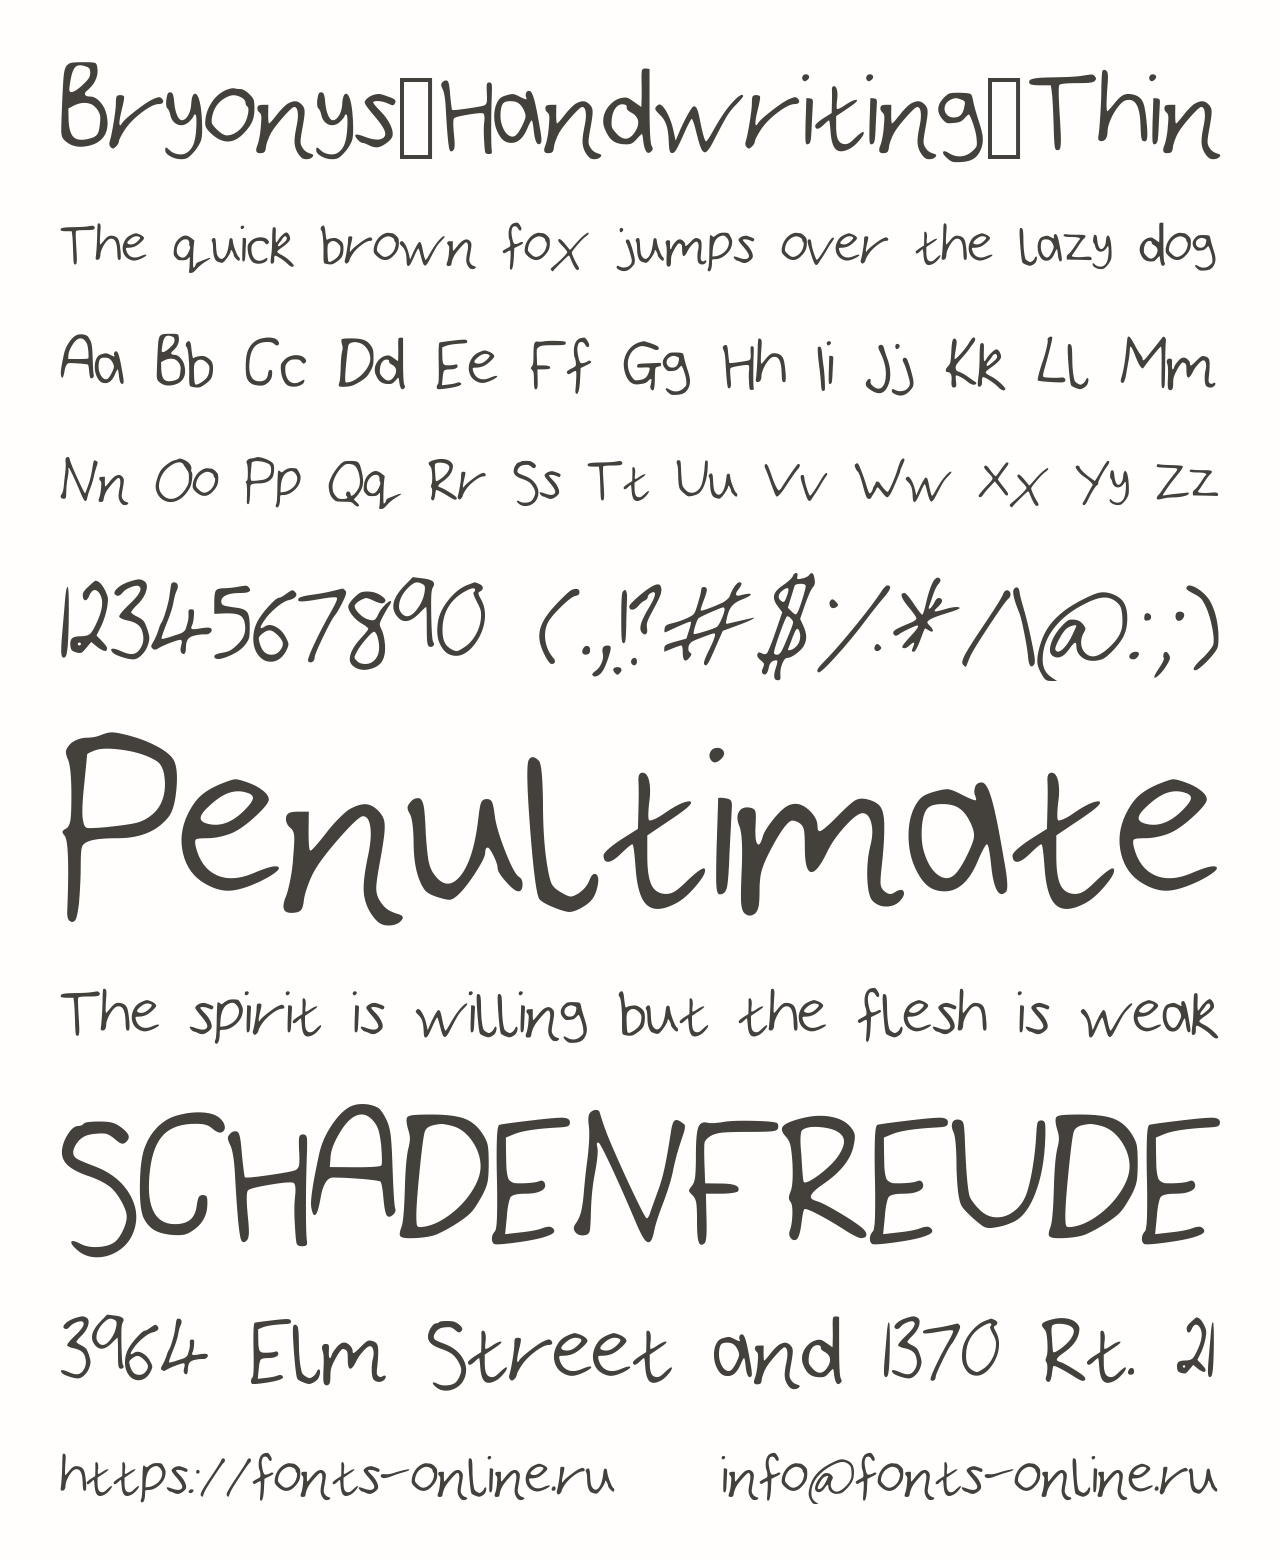 Bryonys▯Handwriting▯Thin
The quick brown fox jumps over the lazy dog
Aa Bb Cc Dd Ee Ff Gg Hh Ii Jj Kk Ll Mm
Nn Oo Pp Qq Rr Ss Tt Uu Vv Ww Xx Yy Zz
1234567890 (.,!?#$%*/\@:;)
Penultimate
The spirit is willing but the flesh is weak
SCHADENFREUDE
3964 Elm Street and 1370 Rt. 21
https://fonts-online.ru info@fonts-online.ru